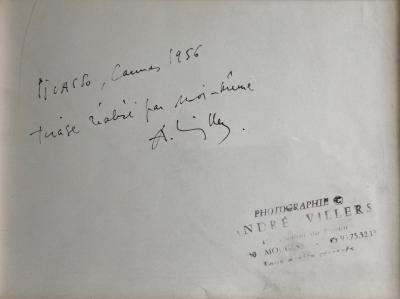 PICASSO, Cannes 1956
tirage réalisé par moi-même
A. Villers.
PHOTOGRAPHIE ©
ANDRÉ VILLERS